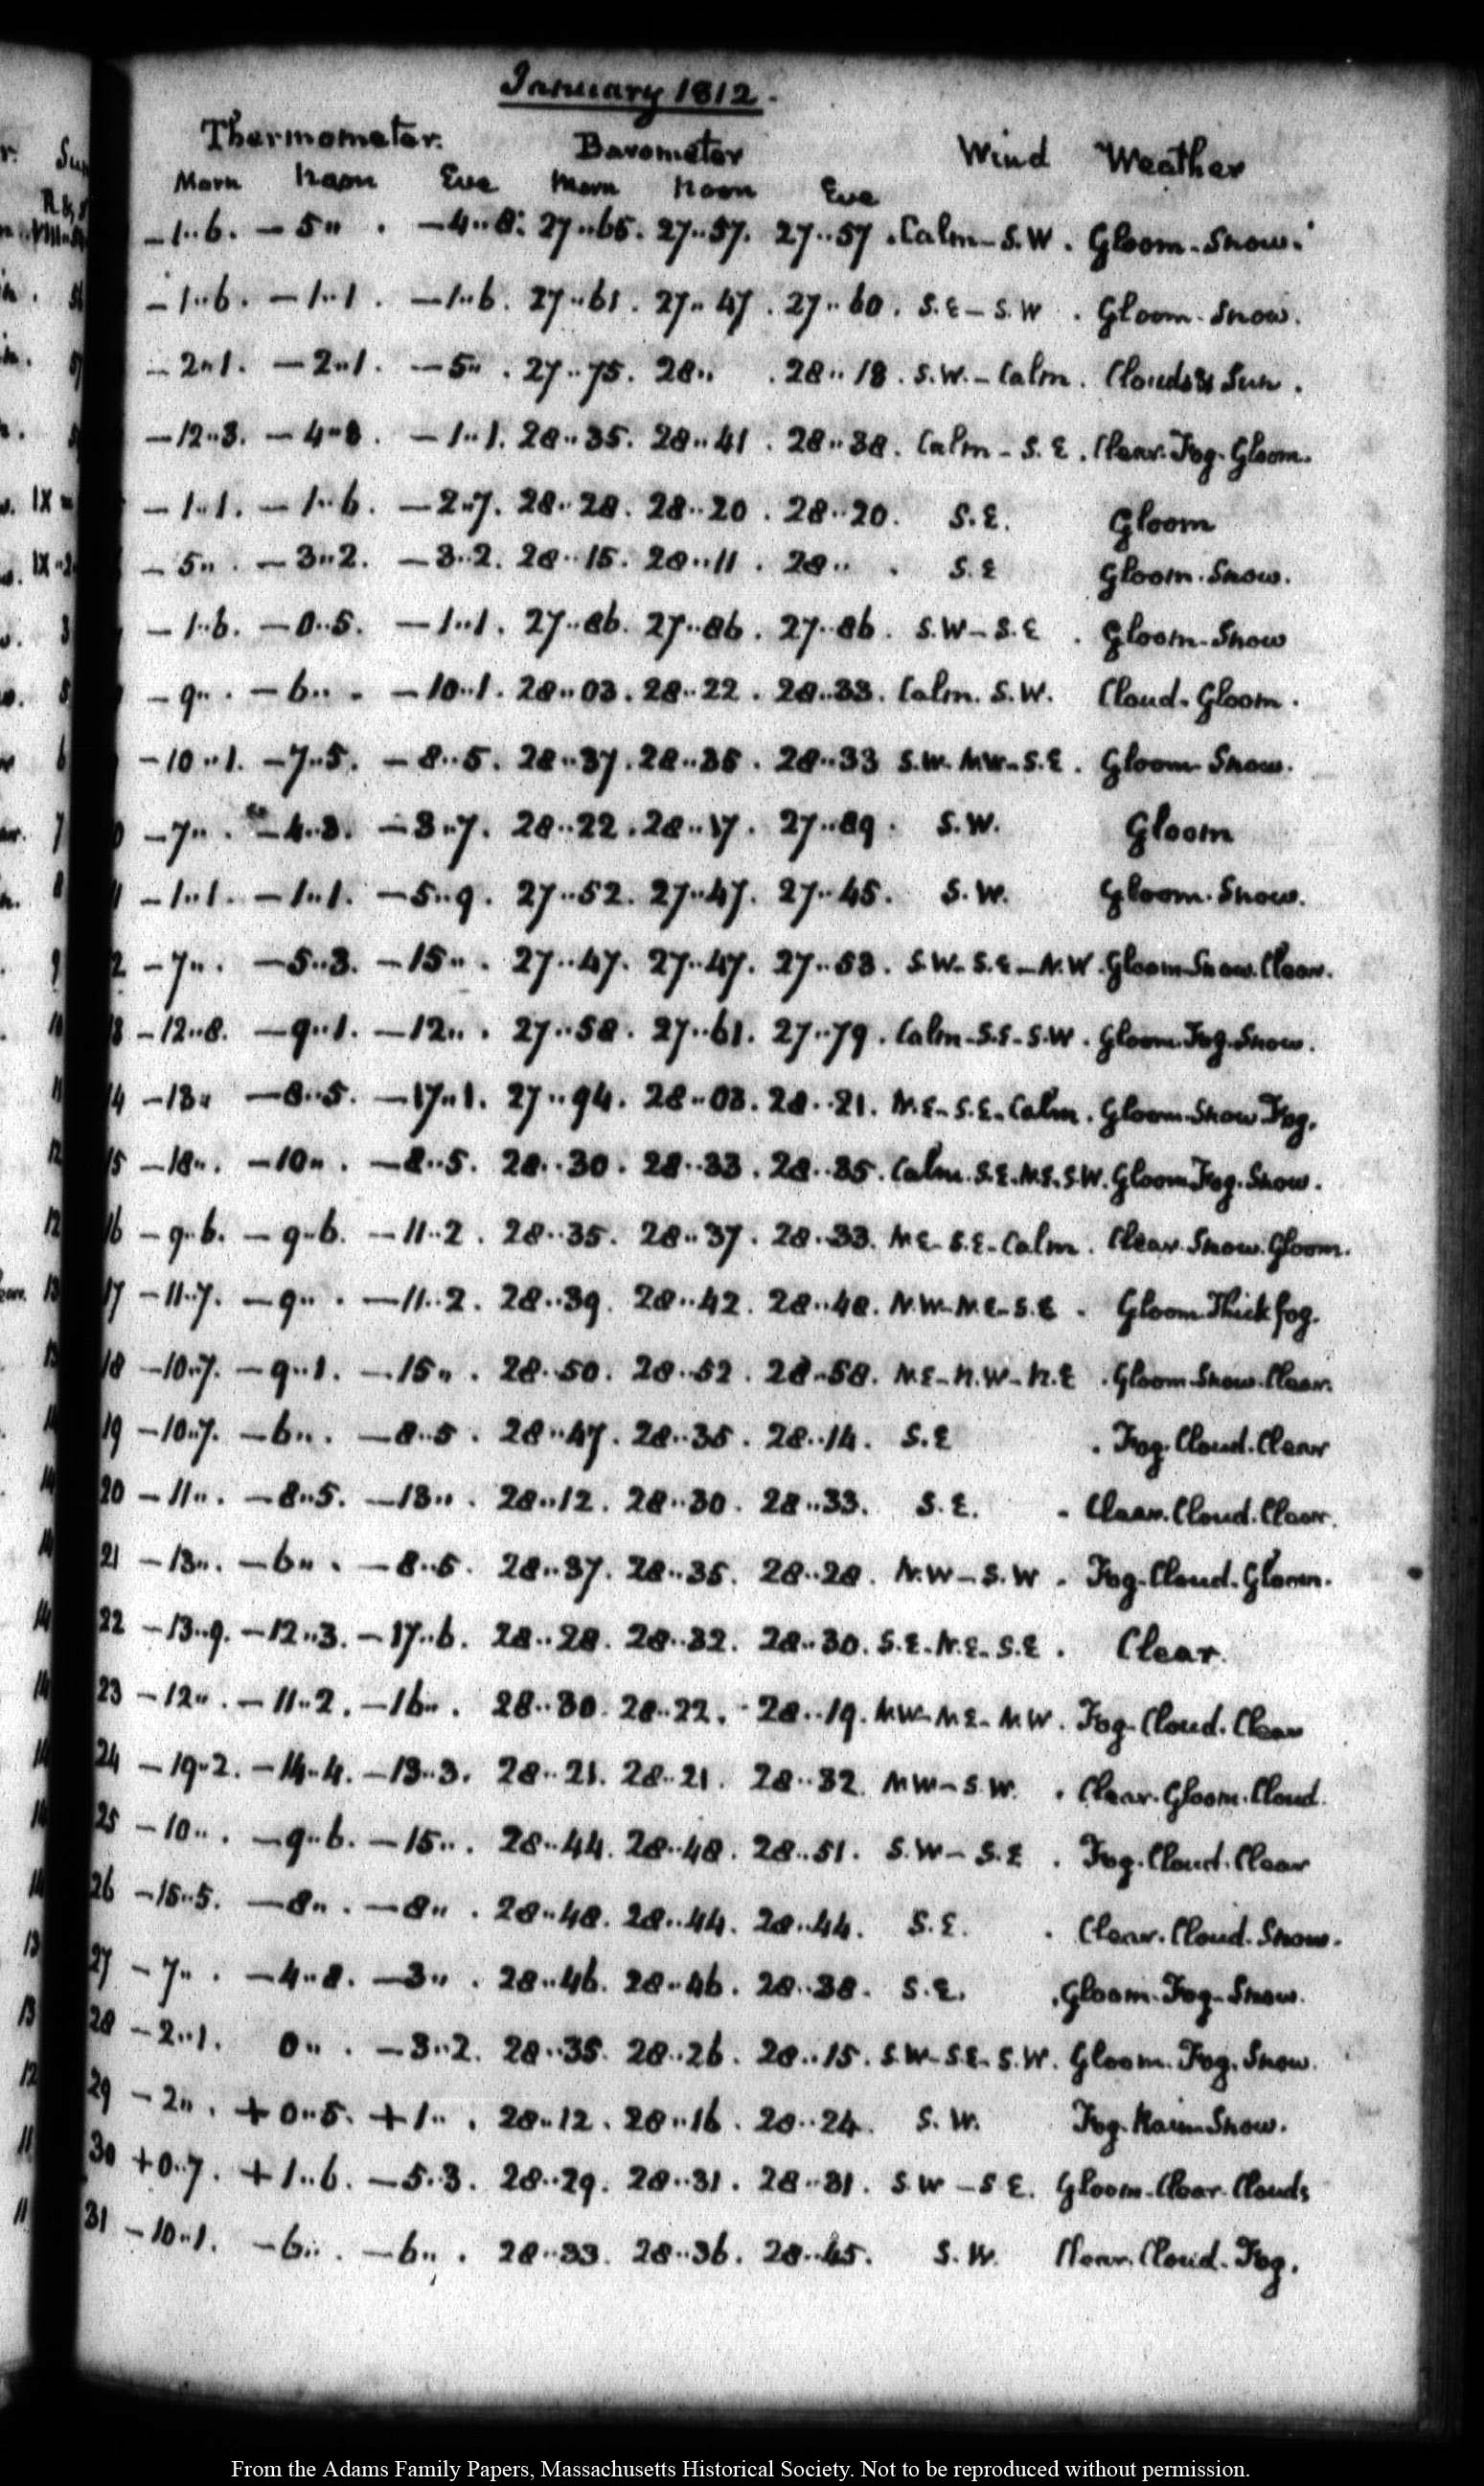 January 1812.
Thermometer. Barometer Wind Weather
Morn Noon Eve Morn Noon Eve
−1..6. −5.. . −4..8. 27..65. 27..57. 27..57. Calm−S.W. Gloom-Snow.
−1..6. −1..1. −1..6. 27..61. 27..47. 27..60. S.E−S.W. Gloom-Snow.
−2..1. −2..1. −5.. . 27..75. 28.. . 28..18. S.W.−Calm. Clouds & Sun.
−12..3. −4..8. −1..1. 28..35. 28..41. 28..38. Calm−S.E. Clear-Fog-Gloom.
−1..1. −1..6. −2..7. 28..28. 28..20. 28..20. S.E. Gloom
−5.. . −3..2. −3..2. 28..15. 28..11. 28.. . S.E Gloom-Snow.
−1..6. −0..5. −1..1. 27..86. 27..86. 27..86. S.W−S.E. Gloom-Snow
−9.. . −6.. . −10..1. 28..03. 28..22. 28..33. Calm. S.W. Cloud-Gloom.
−10..1. −7..5. −8..5. 28..37. 28..35. 28..33 S.W-NW-S.E. Gloom-Snow.
−7.. . −4..3. −3..7. 28..22. 28..17. 27..89. S.W. Gloom
−1..1. −1..1. −5..9. 27..52. 27..47. 27..45. S.W. Gloom-Snow.
2 −7.. . −5..3. −15.. . 27..47. 27..47. 27..53. S.W-S.E-N.W. Gloom-Snow-Clear.
13 −12..8. −9..1. −12.. . 27..58. 27..61. 27..79. Calm-S.E-S.W. Gloom-Fog-Snow.
14 −13.. −8..5. −17..1. 27..94. 28..03. 28..21. N.E-S.E-Calm. Gloom-Snow Fog.
15 −18.. . −10.. . −8..5. 28..30. 28..33. 28..35. Calm.S.E-N.E-S.W. Gloom-Fog-Snow.
16 −9..6. −9..6. −11..2. 28..35. 28..37. 28..33. NE-S.E-Calm. Clear-Snow-Gloom.
17 −11..7. −9.. . −11..2. 28..39. 28..42. 28..48. N.W-N.E-S.E. Gloom-Thick fog.
18 −10..7. −9..1. −15.. . 28..50. 28..52. 28..58. N.E-N.W-N.E. Gloom-Snow-Clear.
19 −10..7. −6.. . −8..5. 28..47. 28..35. 28..14. S.E. Fog-Cloud-Clear
20 −11.. . −8..5. −13.. . 28..12. 28..30. 28..33. S.E. Clear-Cloud-Clear.
21 −13.. . −6.. . −8..5. 28..37. 28..35. 28..28. N.W−S.W. Fog-Cloud-Gloom.
22 −13..9. −12..3. −17..6. 28..28. 28..32. 28..30. S.E-N.E-S.E. Clear.
23 −12.. . −11..2. −16.. . 28..30. 28..22. 28..19. NW-NE-NW. Fog-Cloud-Clear
24 −19..2. −14..4. −13..3. 28..21. 28..21. 28..32. NW-S.W. Clear-Gloom-Cloud.
25 −10.. . −9..6. −15.. . 28..44. 28..48. 28..51. S.W−S.E. Fog-Cloud-Clear
26 −15..5. −8.. . −8.. . 28..48. 28..44. 28..44. S.E. Clear-Cloud-Snow.
27 −7.. . −4..8. −3.. . 28..46. 28..46. 28..38. S.E. Gloom-Fog-Snow.
28 −2..1. 0.. . −3..2. 28..35. 28..26. 28..15. S.W-S.E-S.W. Gloom-Fog-Snow.
29 −2.. . +0..5. +1.. . 28..12. 28..16. 28..24. S.W. Fog-Rain-Snow.
30 +0..7. +1..6. −5..3. 28..29. 28..31. 28..31. S W−S E. Gloom-Clear-Clouds
31 −10..1. −6.. . −6.. . 28..33. 28..36. 28..45. S.W. Clear-Cloud-Fog.
From the Adams Family Papers, Massachusetts Historical Society. Not to be reproduced without permission.